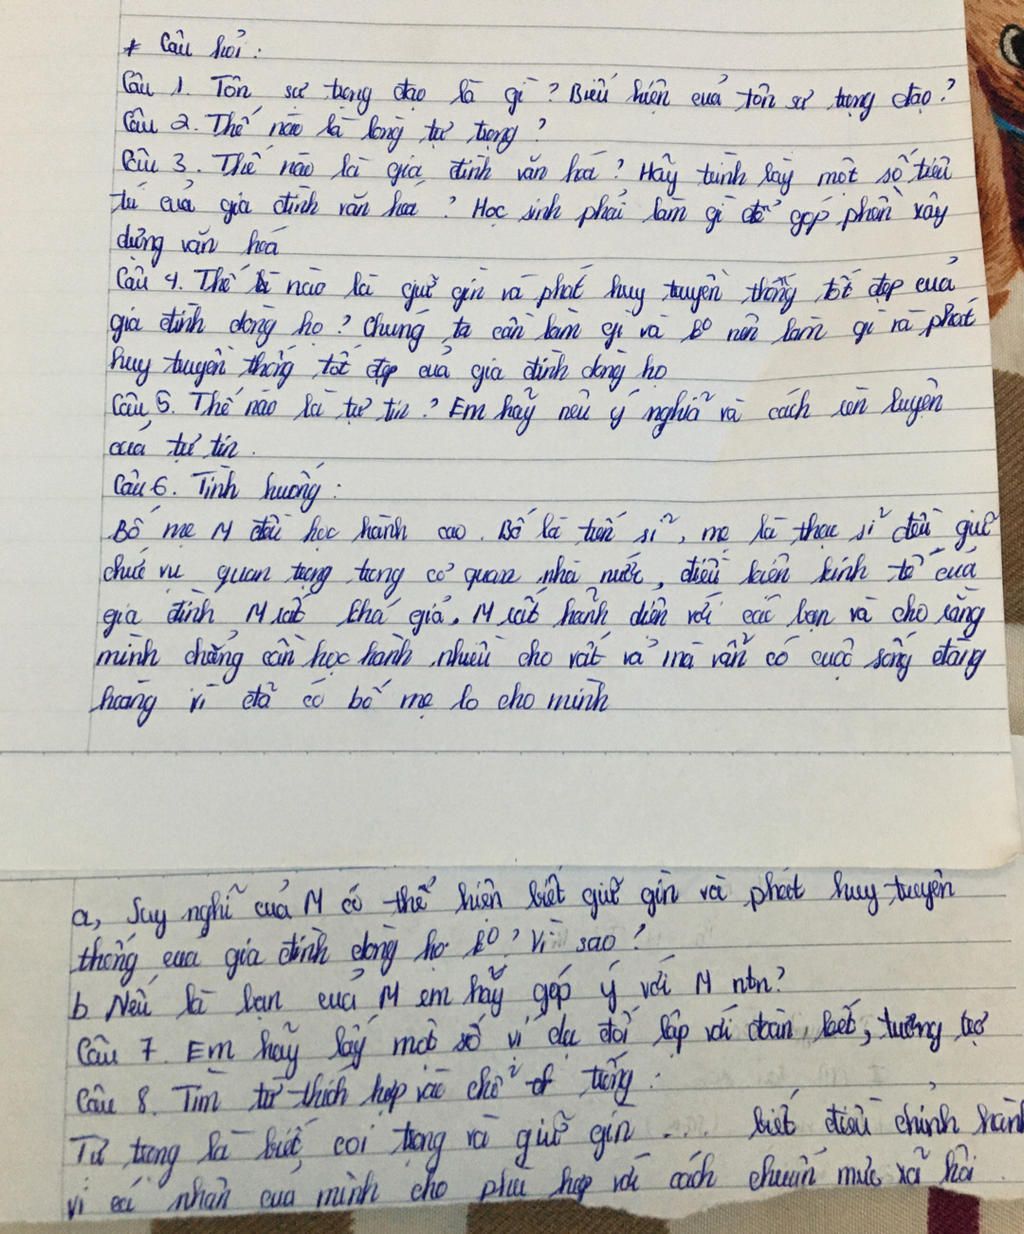 * Câu hỏi:
Câu 1. Tôn sư trọng đạo là gì? Biểu hiện của tôn sư trọng đạo?
Câu 2. Thế nào là lòng tự trọng?
Câu 3. Thế nào là gia đình văn hoá? Hãy trình bày một số tiêu
trí của gia đình văn hoá? Học sinh phải làm gì để góp phần xây
dựng văn hoá
Câu 4. Thế nào là giữ gìn và phát huy truyền thống tốt đẹp của
gia đình dòng họ? Chúng ta cần làm gì và k° nên làm gì và phát
huy truyền thống tốt đẹp của gia đình dòng họ
Câu 5. Thế nào là tự tin? Em hãy nêu ý nghĩa và cách rèn luyện
của tự tin.
Câu 6. Tình huống:
Bố mẹ M đều học hành cao. Bố là tiến sĩ, mẹ là thạc sĩ đều giữ
chức vụ quan trọng trong cơ quan nhà nước, điều kiện kinh tế của
gia đình M rất khá giả. M rất hãnh diện với các bạn và cho rằng
mình chẳng cần học hành nhiều cho vất vả mà vẫn có cuộc sống đàng
hoàng vì đã có bố mẹ lo cho mình
a, Suy nghĩ của M có thể hiện biết giữ gìn và phát huy truyền
thống của gia đình dòng họ k°? Vì sao?
b Nếu là bạn của M em hãy góp ý với M ntn?
Câu 7. Em hãy lấy một số ví dụ đối lập với đoàn kết, tương trợ
Câu 8. Tìm từ thích hợp vào chỗ trống:
Tự trọng là biết coi trọng và giữ gìn ... biết điều chỉnh hành
vi cá nhân của mình cho phù hợp với cách chuẩn mực xã hội.